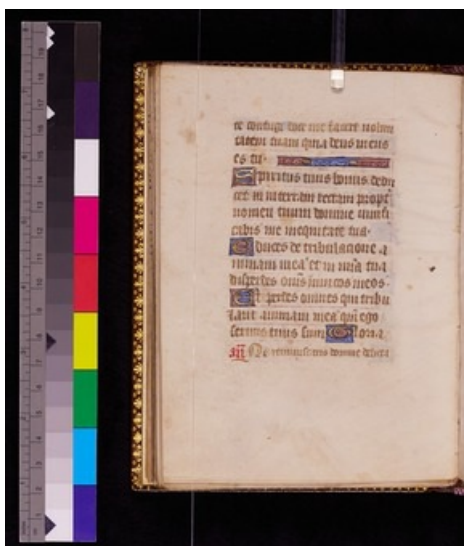 te confugi doce me facere volun
tatem tuam quia deus meus
es tu.
Spiritus tuus bonus dedu
cet me in terram rectam propt
nomen tuum domine vivifi
cabis me in equitate tua.
Educes de tribulacione a
nimam meā et in mīā tua
disperdes omīs inimicos meos.
Et perdes omnes qui tribu
lant animam meā qm̄ ego
servus tuus sum Gloria.
añ Ne reminiscaris domine delicta